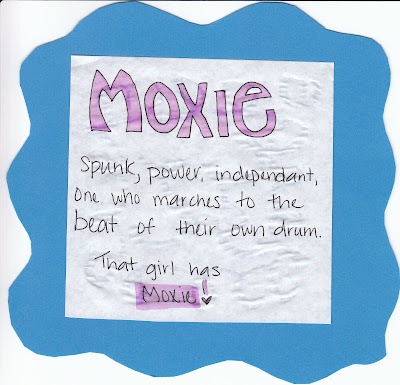 Moxie
Spunk, power, independant,
one who marches to the
beat of their own drum.
That girl has
Moxie!